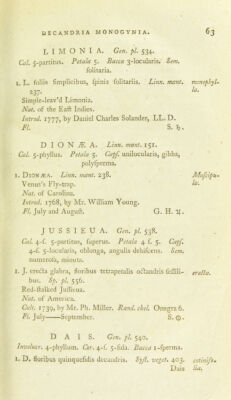 DECANDRIA MONOGYNIA. 63
LIMONIA. Gen. pl. 534.
Cal. 5-partitus. Petala 5. Bacca 3-locularis. Sem.
solitaria.
1. L. foliis simplicibus, spinis solitariis. Linn. mant. monophyl-
237. la.
Simple-leav'd Limonia.
Nat. of the East Indies.
Introd. 1777, by Daniel Charles Solander, LL. D.
Fl. S. ♄.
DIONÆA. Linn. mant. 151.
Cal. 5-phyllus. Petala 5. Caps. unilocularis, gibba,
polysperma.
1. DIONÆA. Linn. mant. 238. Muscipu-
Venus's Fly-trap. la.
Nat. of Carolina.
Introd. 1768, by Mr. William Young.
Fl. July and August. G. H. ♃.
JUSSIEUA. Gen. pl. 538.
Cal. 4-f. 5-partitus, superus. Petala 4 f. 5. Caps.
4-f. 5-locularis, oblonga, angulis dehiscens. Sem.
numerosa, minuta.
1. J. erecta glabra, floribus tetrapetalis octandris sessili- erecta.
bus. Sp. pl. 556.
Red-stalked Jussieua.
Nat. of America.
Cult. 1739, by Mr. Ph. Miller. Rand. chel. Onagra 6.
Fl. July——September. S. ☉.
DAIS. Gen. pl. 540.
Involucr. 4-phyllum. Cor. 4-f. 5-fida. Bacca 1-sperma.
1. D. floribus quinquefidis decandris. Syst. veget. 403. cotinifo-
Dais lia.